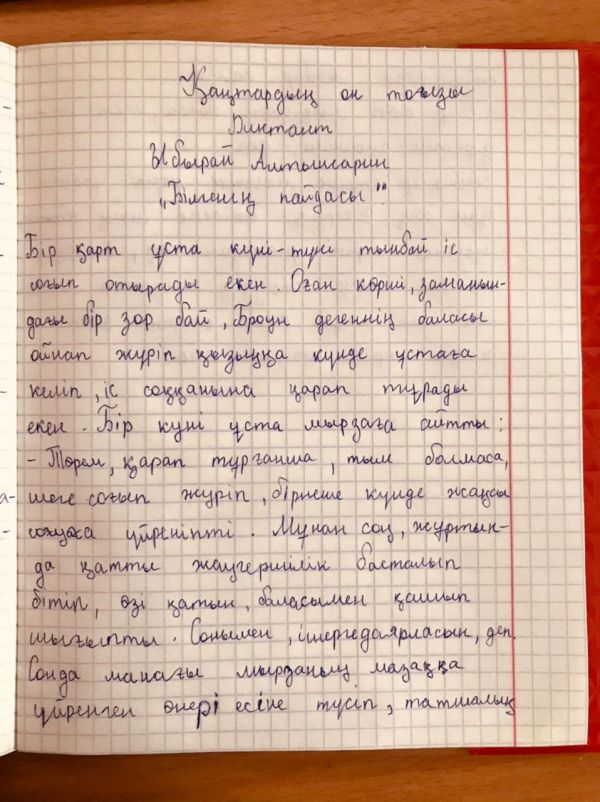 Қаңтардың он тоғызы
Диктант
Ыбырай Алтынсарин
„Білменің пайдасы"
Бір қарт ұста күні-түні тынбай іс
соғып отырады екен. Оған көрші, заманын-
дағы бір зор бай, Броун дегеннің баласы
ойнап жүріп қызыққа күнде ұстаға
келіп, іс соққанына қарап тұрады
екен. Бір күні ұста мырзаға айтты:
- Төрем, қарап тұрғанша, тым болмаса,
шеге соғып жүріп, бірнеше күнде жақсы
соғуға үйреніпті. Мұнан соң, жұртын-
да қатты жаугершілік басталып
бітіп, өзі қатын, баласымен қашып
шығыпты. Сонымен, ішерге деп
Сонда манағы мырзаның мазаққа
үйренген өнері есіне түсіп, татшалық